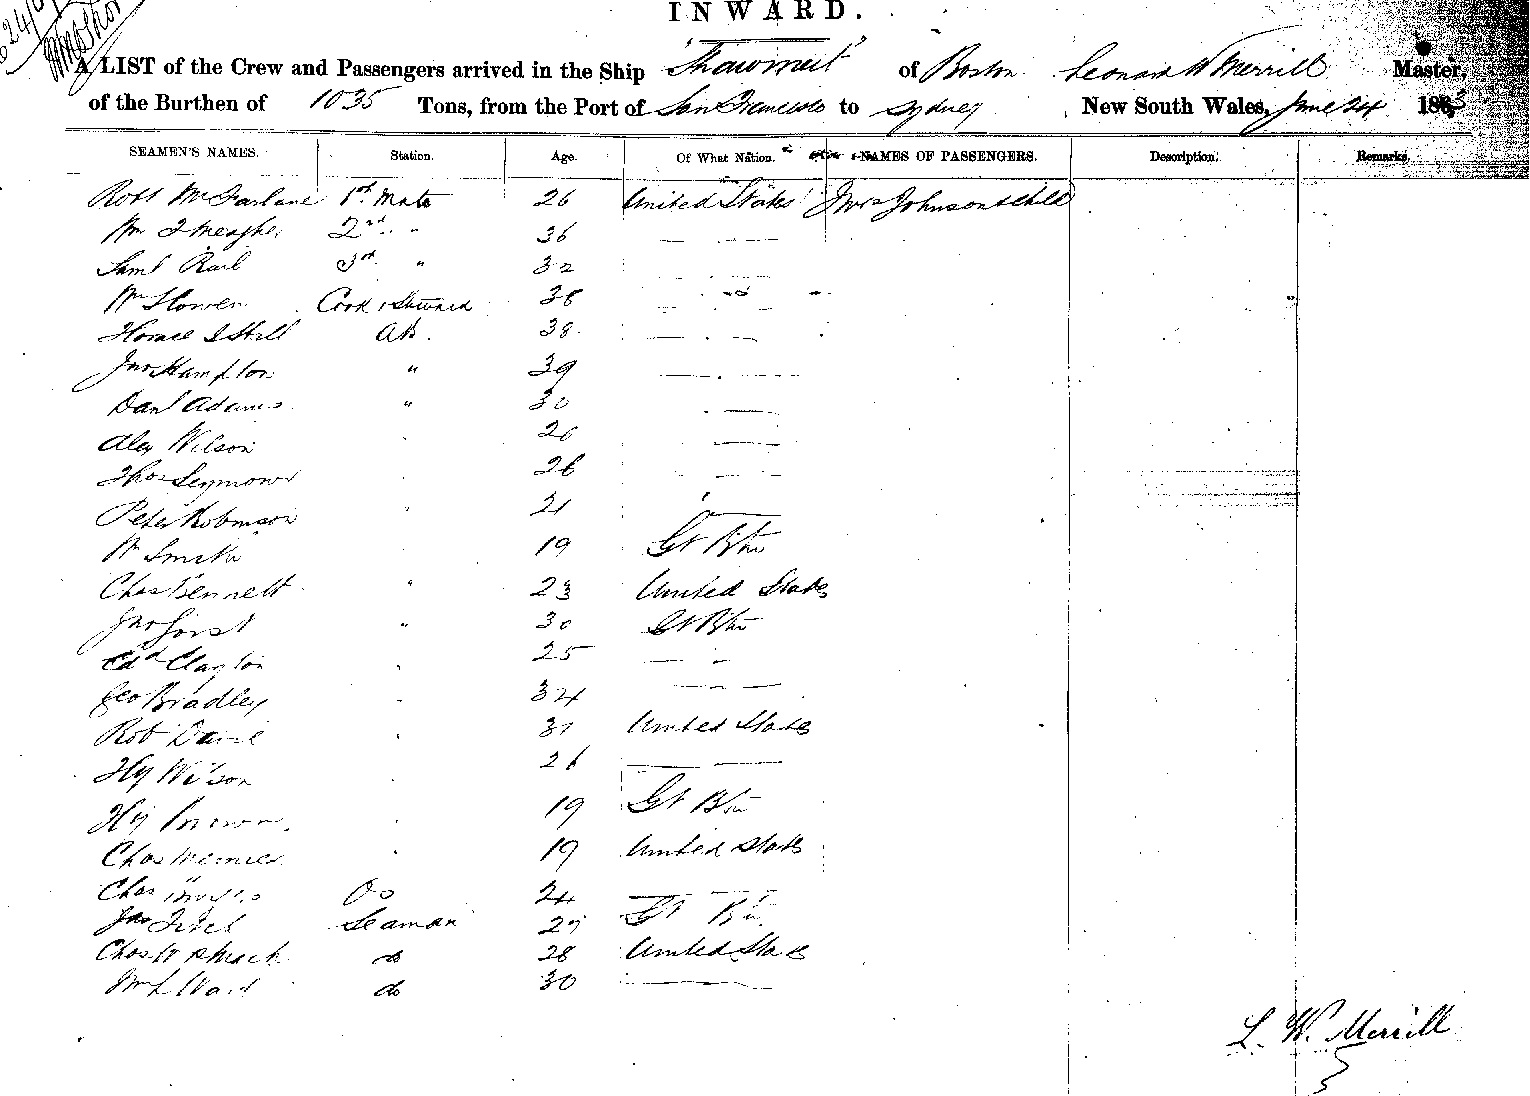 INWARD.
A LIST of the Crew and Passengers arrived in the Ship "Shawmut" of Boston Leonard W Merrill Master,
of the Burthen of 1035 Tons, from the Port of San Francisco to Sydney New South Wales, June 24 186
SEAMEN'S NAMES. Station. Age. Of What Nation. NAMES OF PASSENGERS. Description. Remarks.
Robt McFarlane 1st Mate 26 United States Mrs Johnson & Child
Wm Meagher 2nd " 36 — —
Saml Rail 3rd " 32 — —
Wm Cook & Steward 38
Horace S Hill AB. 38 — —
Jno Hampton " 39 — —
Danl Adams " 30 —
Alex Wilson 20 —
Thos Seymour 26 — —
Peter Robinson 21 —
Wm Smith 19 Gt Btn
Chas Bennett " 23 United States
Jno " 30 Gt Btn
Edd Clayton 25 — —
Geo Bradley 34 — —
Rob 31 United States
Hy Wilson 26 — —
Hy Brown 19 Gt Btn
Chas 19 United States
Chas Os 24 — —
Jas Seaman 27 Gt Btn
Chas W do 28 United States
Wm L Ward do 30 — —
L. W. Merrill